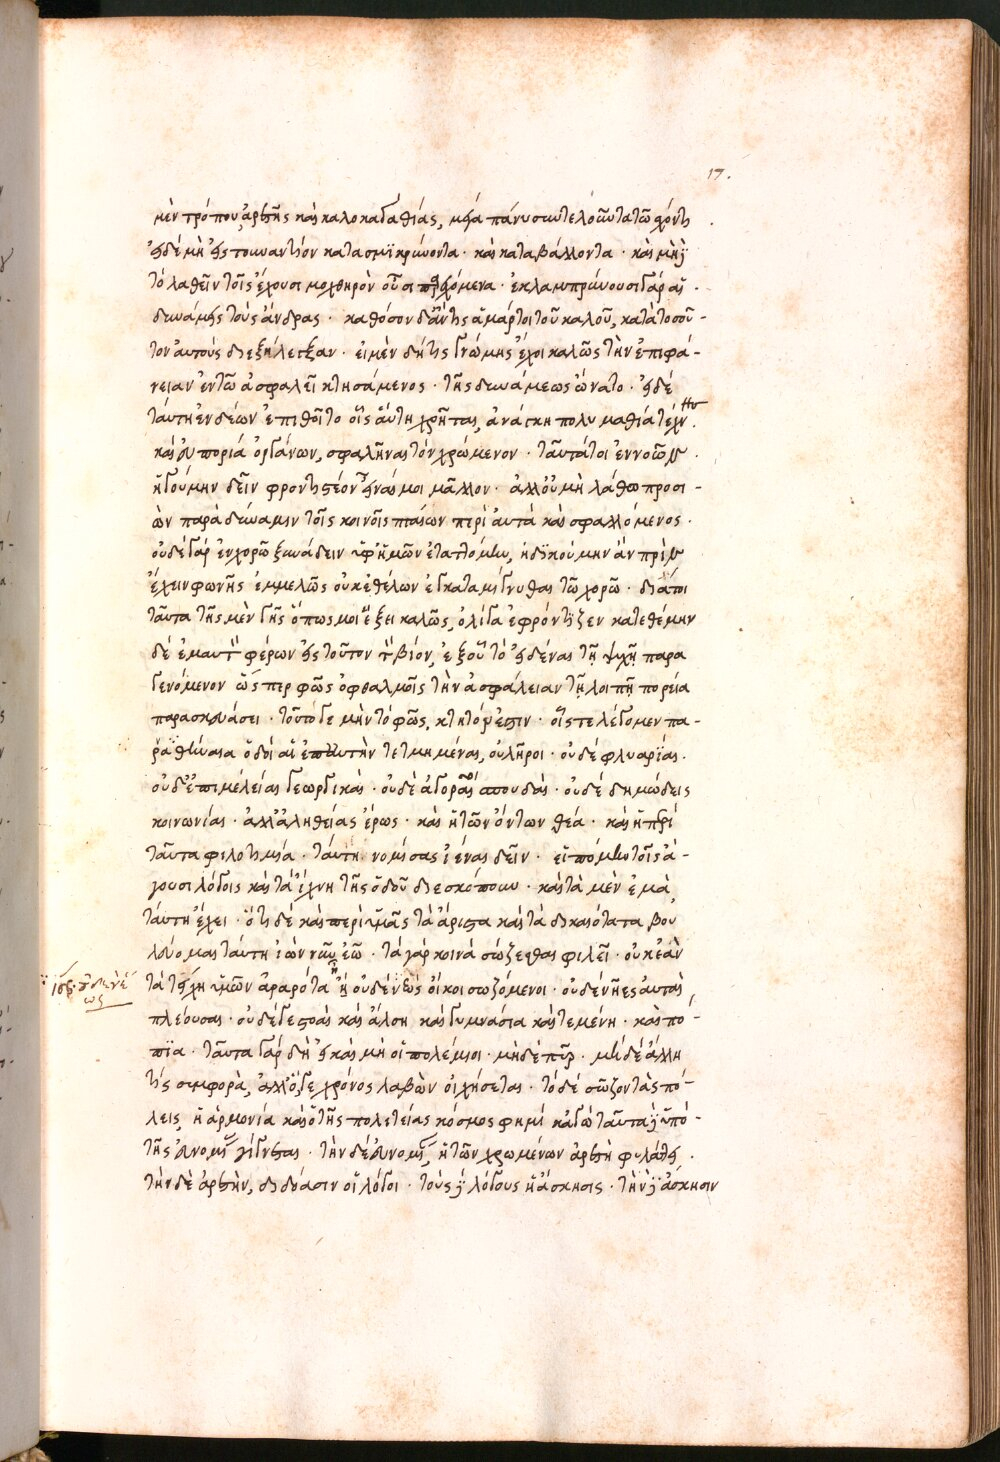 17.
μὲν τρόπου, ἀρετῆς καὶ καλοκαγαθίας, μεγά πάνυ συντελοῦντα τῶ ἔχοντι
εἰ δὲ μὴ εἰς τουναντίον κατασμικρύνοντα · καὶ καταβάλλοντα · καὶ μὴ δὲ
τὸ λαθεῖν τοῖς ἔχουσι μοχθηρὸν οὖσι παρεχόμενα · ἐκλαμπρύνουσι γάρ αἱ
δυνάμεις τοὺς ἄνδρας · καθόσον δ᾽ ἄν τις ἁμάρτοι τοῦ καλοῦ, κατὰ τοσοῦ -
τον αὐτοὺς διεξήλεγξαν · εἰ μὲν δή τις γνώμης ἔχοι καλῶς τὴν ἐπιφά -
νειαν ἐν τῶ ἀσφαλεῖ κτησάμενος · τῆς δυνάμεως ὤνατο · εἰ δὲ
ταύτη ἐνδέων ἐπιθοῖτο οἷς αὕτη χρῆται, ἀνάγκη πολυμαθία τέχνην
καὶ εὐπορία ὀργάνων, σφαλῆναι τὸν χρώμενον · ταῦτά τοι ἐννοῶν
ἡγούμην δεῖν φροντιστέον εἶναί μοι μᾶλλον · ἀλλ᾽ οὐ μὴ λάθω προσι -
ὼν παρὰ δύναμιν τοῖς κοινοῖς πταίων περὶ αὐτὰ καὶ σφαλλόμενος ·
οὐδὲ γάρ ἐν χορῶ ξυνάδειν ὑφ᾽ ἡμῶν ἐταττόμην, ἠδικούμην ἂν πρὶν
ἔχειν φωνῆς ἐμμελῶς οὐκ ἐθέλων ἐγκαταμίγνυσθαι τῶ χορῶ · διά τοι
ταῦτα τῆς μὲν γῆς ὅπως μοι ἕξει καλῶς, ὀλίγα ἐφρόντιζεν κατεθέμην
δὲ ἐμαυτὸν φέρων εἰς τοῦτον τὸν βίον, ἐξ οὗ τὸ εἰδέναι τῇ ψυχῇ παρα
γενόμενον ὥσπερ φῶς ὀφθαλμοῖς τὴν ἀσφάλειαν τῇ λοιπῇ πορεία
παρασκευάσει · τοῦτό γε μὴν τὸ φῶς, κτητόν ἐστιν · οἷς τε λέγομεν πα -
ρ᾽ ἀθηναια ὁδοί αἱ ἐπ᾽ αὐτὴν τετμημέναι, οὐ λῆροι · οὐδὲ φλυαρίαι ·
οὐδ᾽ ἐπιμέλειαι γεωργικαὶ · οὐδὲ ἀγορᾶς σπουδαὶ · οὐδὲ δημώδεις
κοινωνίαι · ἀλλ᾽ ἀληθείας ἔρως · καὶ ἡ τῶν ὄντων θέα · καὶ ἡ περὶ
ταῦτα φιλοτιμία · ταύτη νομίσας ἰέναι δεῖν · εἱπόμην τοῖς ἄ -
γουσι λόγοις καὶ τὰ ἴχνη τῆς ὁδοῦ διεσκόπουν · καὶ τὰ μὲν ἐμὰ
ταύτη ἔχει · ὅτι δὲ καὶ περὶ ὑμᾶς τὰ ἄριστα καὶ τὰ δικαιότατα βου
λεύομαι ταύτη ἰὼν νῦν ἐῶ · τὰ γὰρ κοινὰ σώζεσθαι φιλεῖ · οὐκ ἐὰν
τὰ τείχη ὑμῶν ἀραρότα ἢ οὐδὲ νεὼς οἰκοι σωζόμενοι · οὐδὲ νῆες αὐταὶ
πλέουσαι · οὐδέ γε στοὰς καὶ ἄλση καὶ γυμνάσια καὶ τεμένη · καὶ πο -
πῖα · ταῦτα γάρ δὴ εἰ καὶ μὴ οἱ πολέμιοι · μηδὲ πῦρ · μὴ δὲ ἄλλη
τις συμφορὰ, ἀλλ᾽ ὅ γε χρόνος λαβὼν οἰχήσεται · τὸ δὲ σῶζον τὰς πό -
λεις, ἡ ἁρμονία καὶ ὁ τῆς πολιτείας κόσμος φημί κἀγὼ ταῦτα δὲ ὑπὸ -
τῆς εὐνομίας γίγνεται · τὴν δὲ εὐνομίαν, ἡ τῶν χρωμένων ἀρετὴ φυλάττει ·
τὴν δὲ ἀρετὴν, διδόασιν οἱ λόγοι · τοὺς δὲ λόγους ἡ ἄσκησις · τὴν δὲ ἄσκησιν